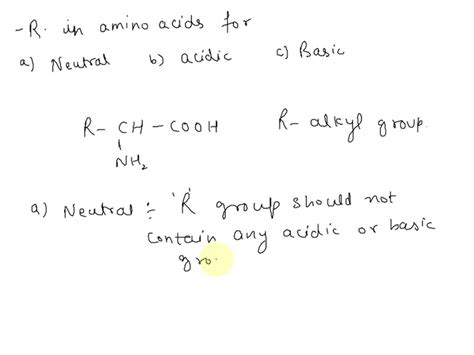 -R. in amino acids for
a) Neutral b) acidic c) Basic
R- CH - COOH R- alkyl group.
NH2
a) Neutral :- 'R' group should not
contain any acidic or basic
gro.